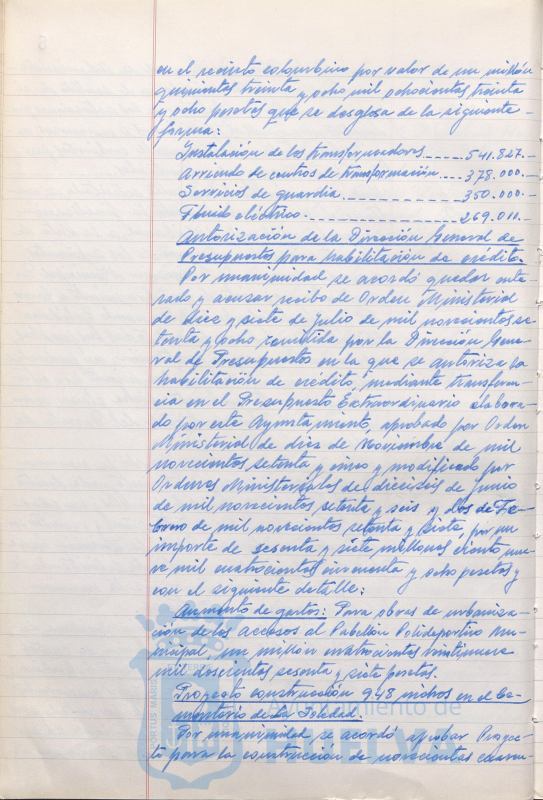 en el recinto colombino por valor de un millón
quinientas treinta y ocho mil ochocientas treinta
y ocho pesetas que se desglosa de la siguiente
forma:
Instalación de los transformadores.----541.827.-
Arriendo de centros de transformación.---378.000.-
Servicios de guardia.---------350.000.-
Fluido eléctrico.-----------269.011.-
Autorización de la Dirección General de
Presupuestos para habilitación de crédito.
Por unanimidad se acordó quedar ente-
rado y acusar recibo de Orden Ministerial
de diez y siete de Julio de mil novecientos se-
tenta y ocho remitida por la Dirección Gene-
ral de Presupuestos en la que se autoriza la
habilitación de crédito, mediante transferen-
cia en el Presupuesto Extraordinario elabora-
do por este Ayuntamiento, aprobado por Orden
Ministerial de diez de Noviembre de mil
novecientos setenta y cinco y modificado por
Ordenes Ministeriales de dieciséis de Junio
de mil novecientos setenta y seis y dos de Fe-
brero de mil novecientos setenta y siete, por un
importe de sesenta y siete millones ciento nue-
ve mil cuatrocientas cincuenta y ocho pesetas y
con el siguiente detalle:
Aumento de gastos: Para obras de urbaniza-
ción de los accesos al Pabellón Polideportivo Mu-
nicipal, un millón cuatrocientas veintinueve
mil doscientas sesenta y siete pesetas.
Proyecto construcción 948 nichos en el Ce-
menterio de La Soledad.
Por unanimidad se acordó aprobar Proyec-
to para la construcción de novecientos cuaren-
PORTUS MARIS
Ayuntamiento de
HUELVA